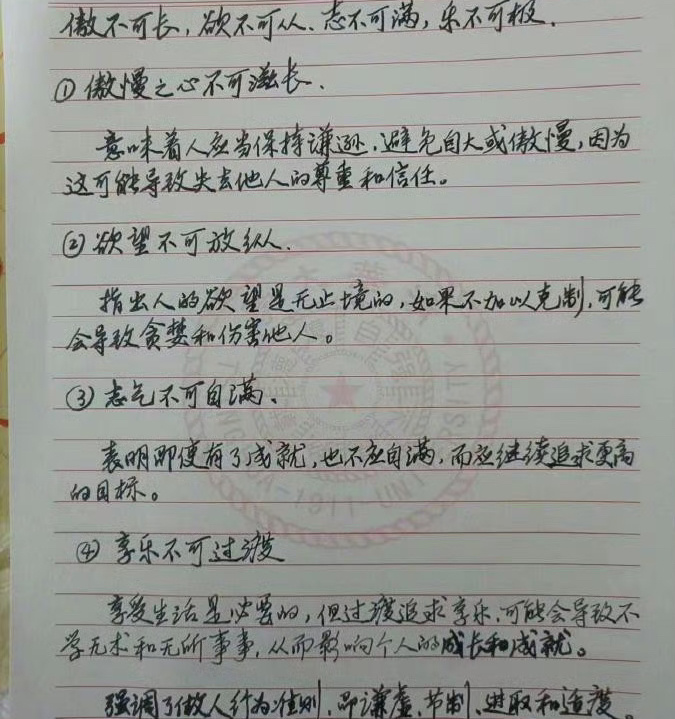 傲不可长,欲不可从、志不可满,乐不可极.
①傲慢之心不可滋长.
意味着人应当保持谦逊.避免自大或傲慢,因为
这可能导致失去他人的尊重和信任。
②欲望不可放纵.
指出人的欲望是无止境的,如果不加以克制,可能
会导致贪婪和伤害他人。
③志气不可自满.
表明即使有了成就,也不应自满,而应继续追求更高
的目标。
④享乐不可过渡
享受生活是必要的,但过渡追求享乐.可能会导致不
学无术和无所事事,从而影响个人的成长和成就。
强调了做人行为准则.即谦虚.节制.进取和适度.
TSINGHUA-1911-UNIVERSITY